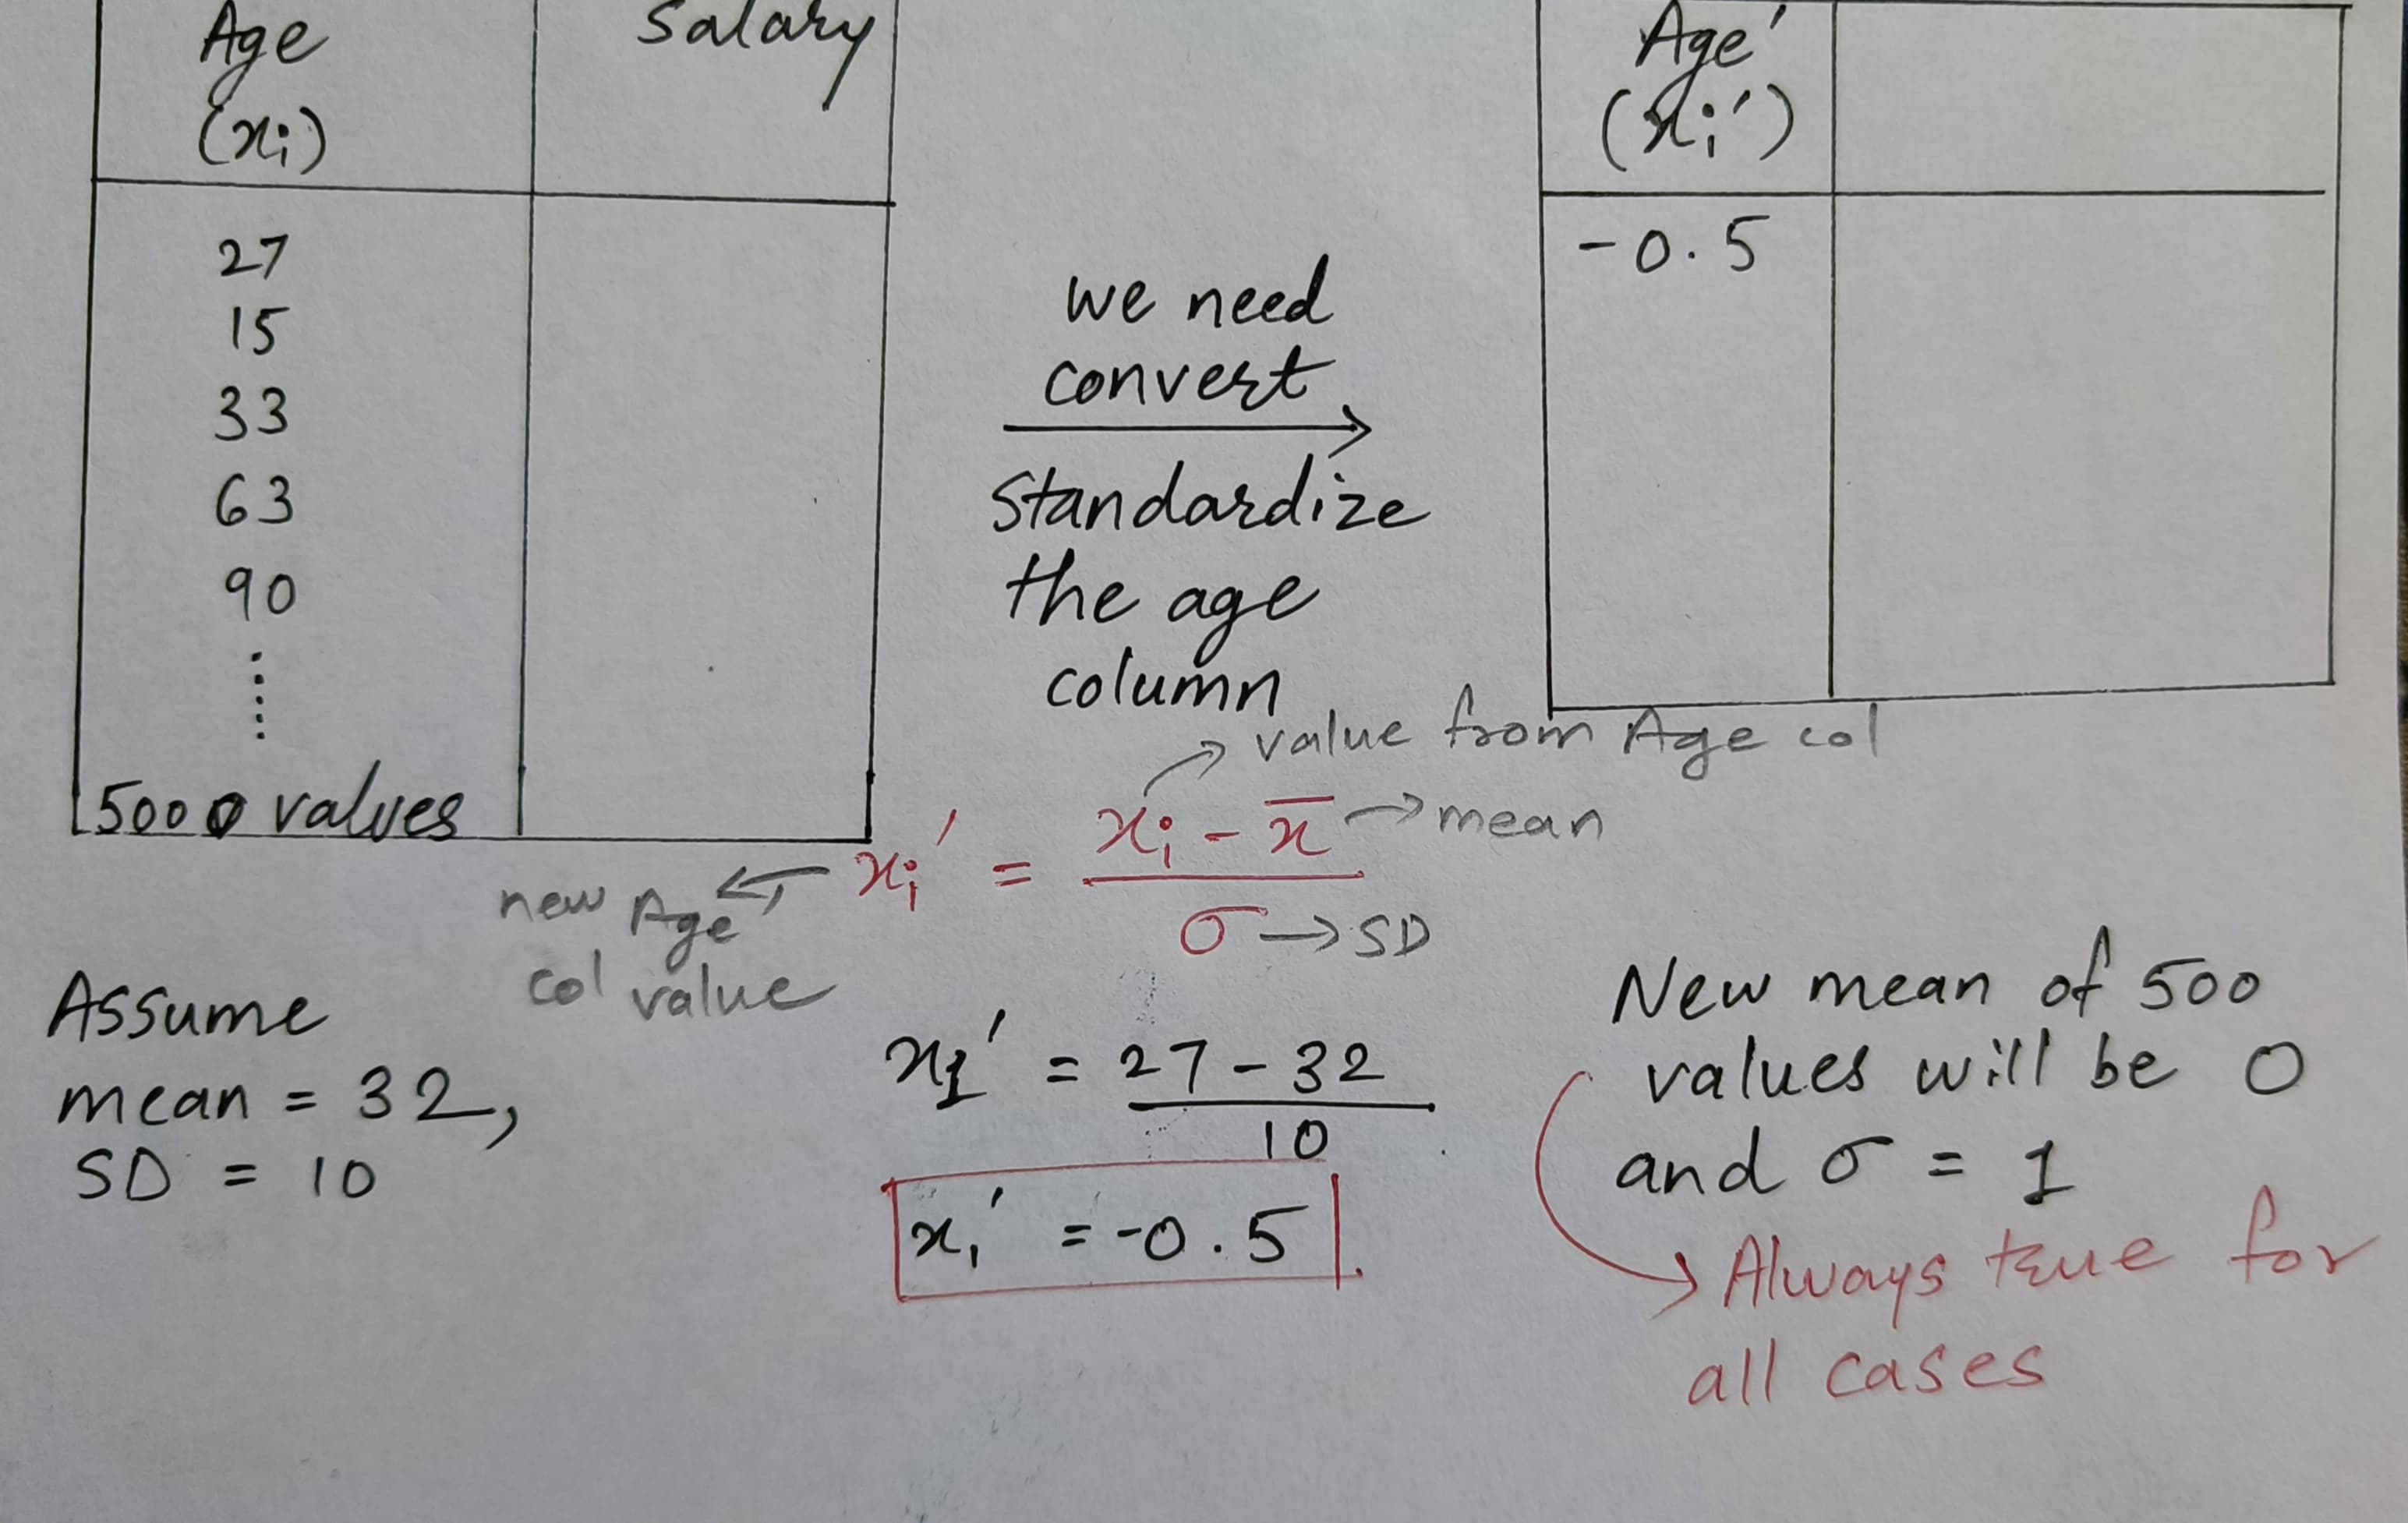 Age
(xi)
Salary
27
15
33
63
90
5000 values
we need
convert
Standardize
the age
column
Age'
(xi')
-0.5
value from Age col
xi' = xi - x̄ / σ
mean
SD
new Age
col value
Assume
mean = 32,
SD = 10
x1' = 27 - 32
10
x1' = -0.5
New mean of 500
values will be 0
and σ = 1
Always true for
all cases